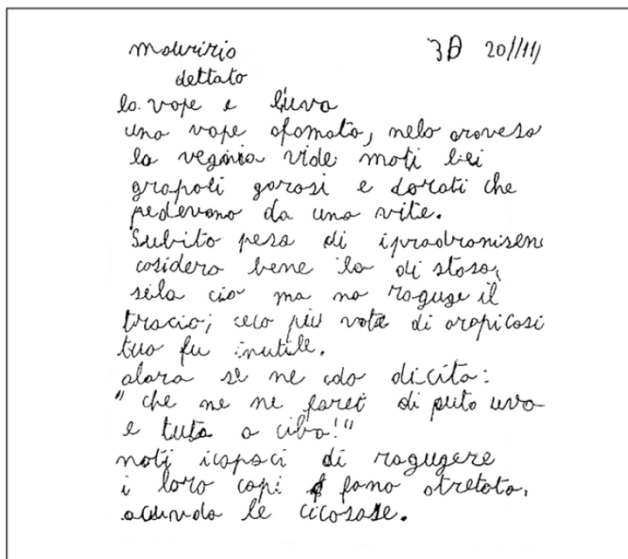 mauririo 3D 20/11/
dettato
la vope e l'uva
una vope afamata, nelo aroveso
la vegnia vide moti bei
grapoli garosi e dorati che
pedevano da una vite.
Subito pesa di ipradronisene
cosidero bene la di stasa,
sila cio ma no raguge il
tracio; ceco più vote di aropicasi
tuo fu inutile.
alara se ne ado dicita:
"che me ne farei di puto uva
e tuta a ciba!"
moti icapaci di ragugere
i loro capi fano atretato,
acundo le cicosase.